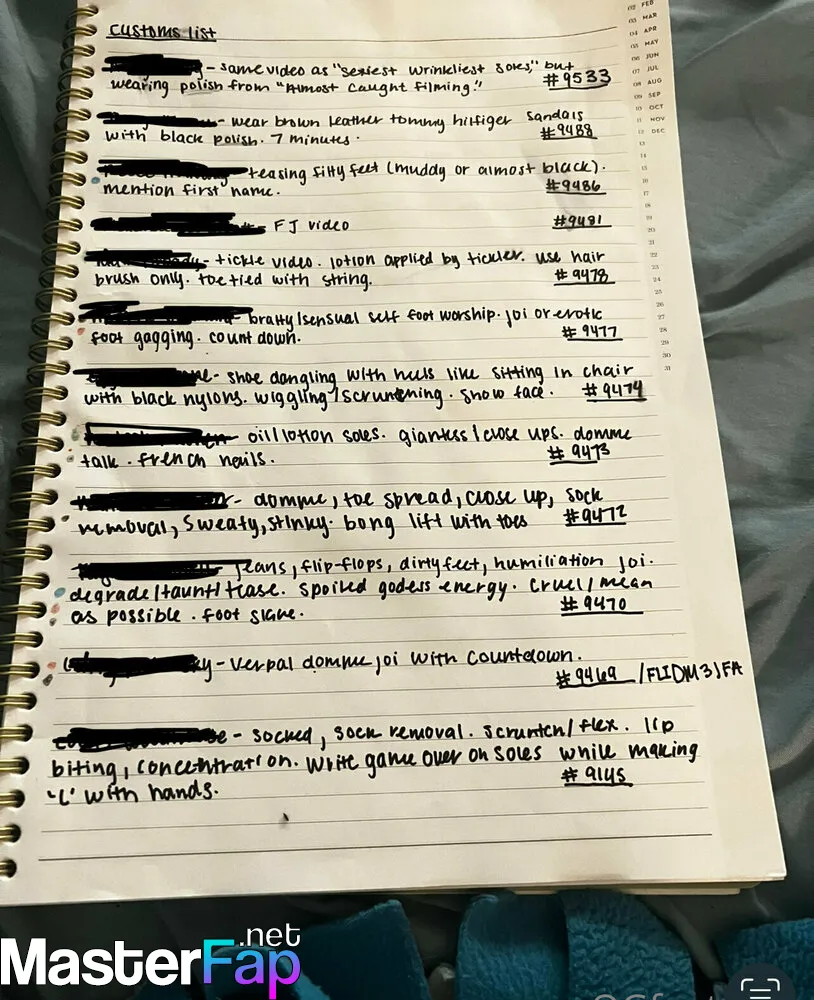 customs list
- same video as "sexiest wrinkliest soles," but
wearing polish from "Almost caught filming." #9533
- wear brown leather tommy hilfiger sandals
with black polish. 7 minutes. #9488
- teasing filty feet (muddy or almost black).
mention first name. #9486
- FJ video #9481
- tickle video. lotion applied by tickler. use hair
brush only. toe tied with string. #9478
- bratty/sensual self foot worship. joi or erotic
foot gagging. count down. #9477
- shoe dangling with heels like sitting in chair
with black nylons. wiggling/scrunching. show face. #9474
oil/lotion soles. giantess/close ups. domme
talk. french nails. #9473
- domme, toe spread, close up, sock
removal, sweaty, stinky. bong lift with toes #9472
- jeans, flip-flops, dirty feet, humiliation joi.
degrade/taunt/tease. spoiled godess energy. cruel/mean
as possible. foot slave. #9470
- verbal domme joi with countdown.
#9469 /FLIDM3JFA
- socked, sock removal. scrunch/flex. lip
biting, concentration. write game over on soles while making
'L' with hands. #9145
02 FEB
03 MAR
04 APR
05 MAY
06 JUN
07 JUL
08 AUG
09 SEP
10 OCT
11 NOV
12 DEC
13
14
15
16
17
18
19
20
21
22
23
24
25
26
27
28
29
30
31
MasterFap.net